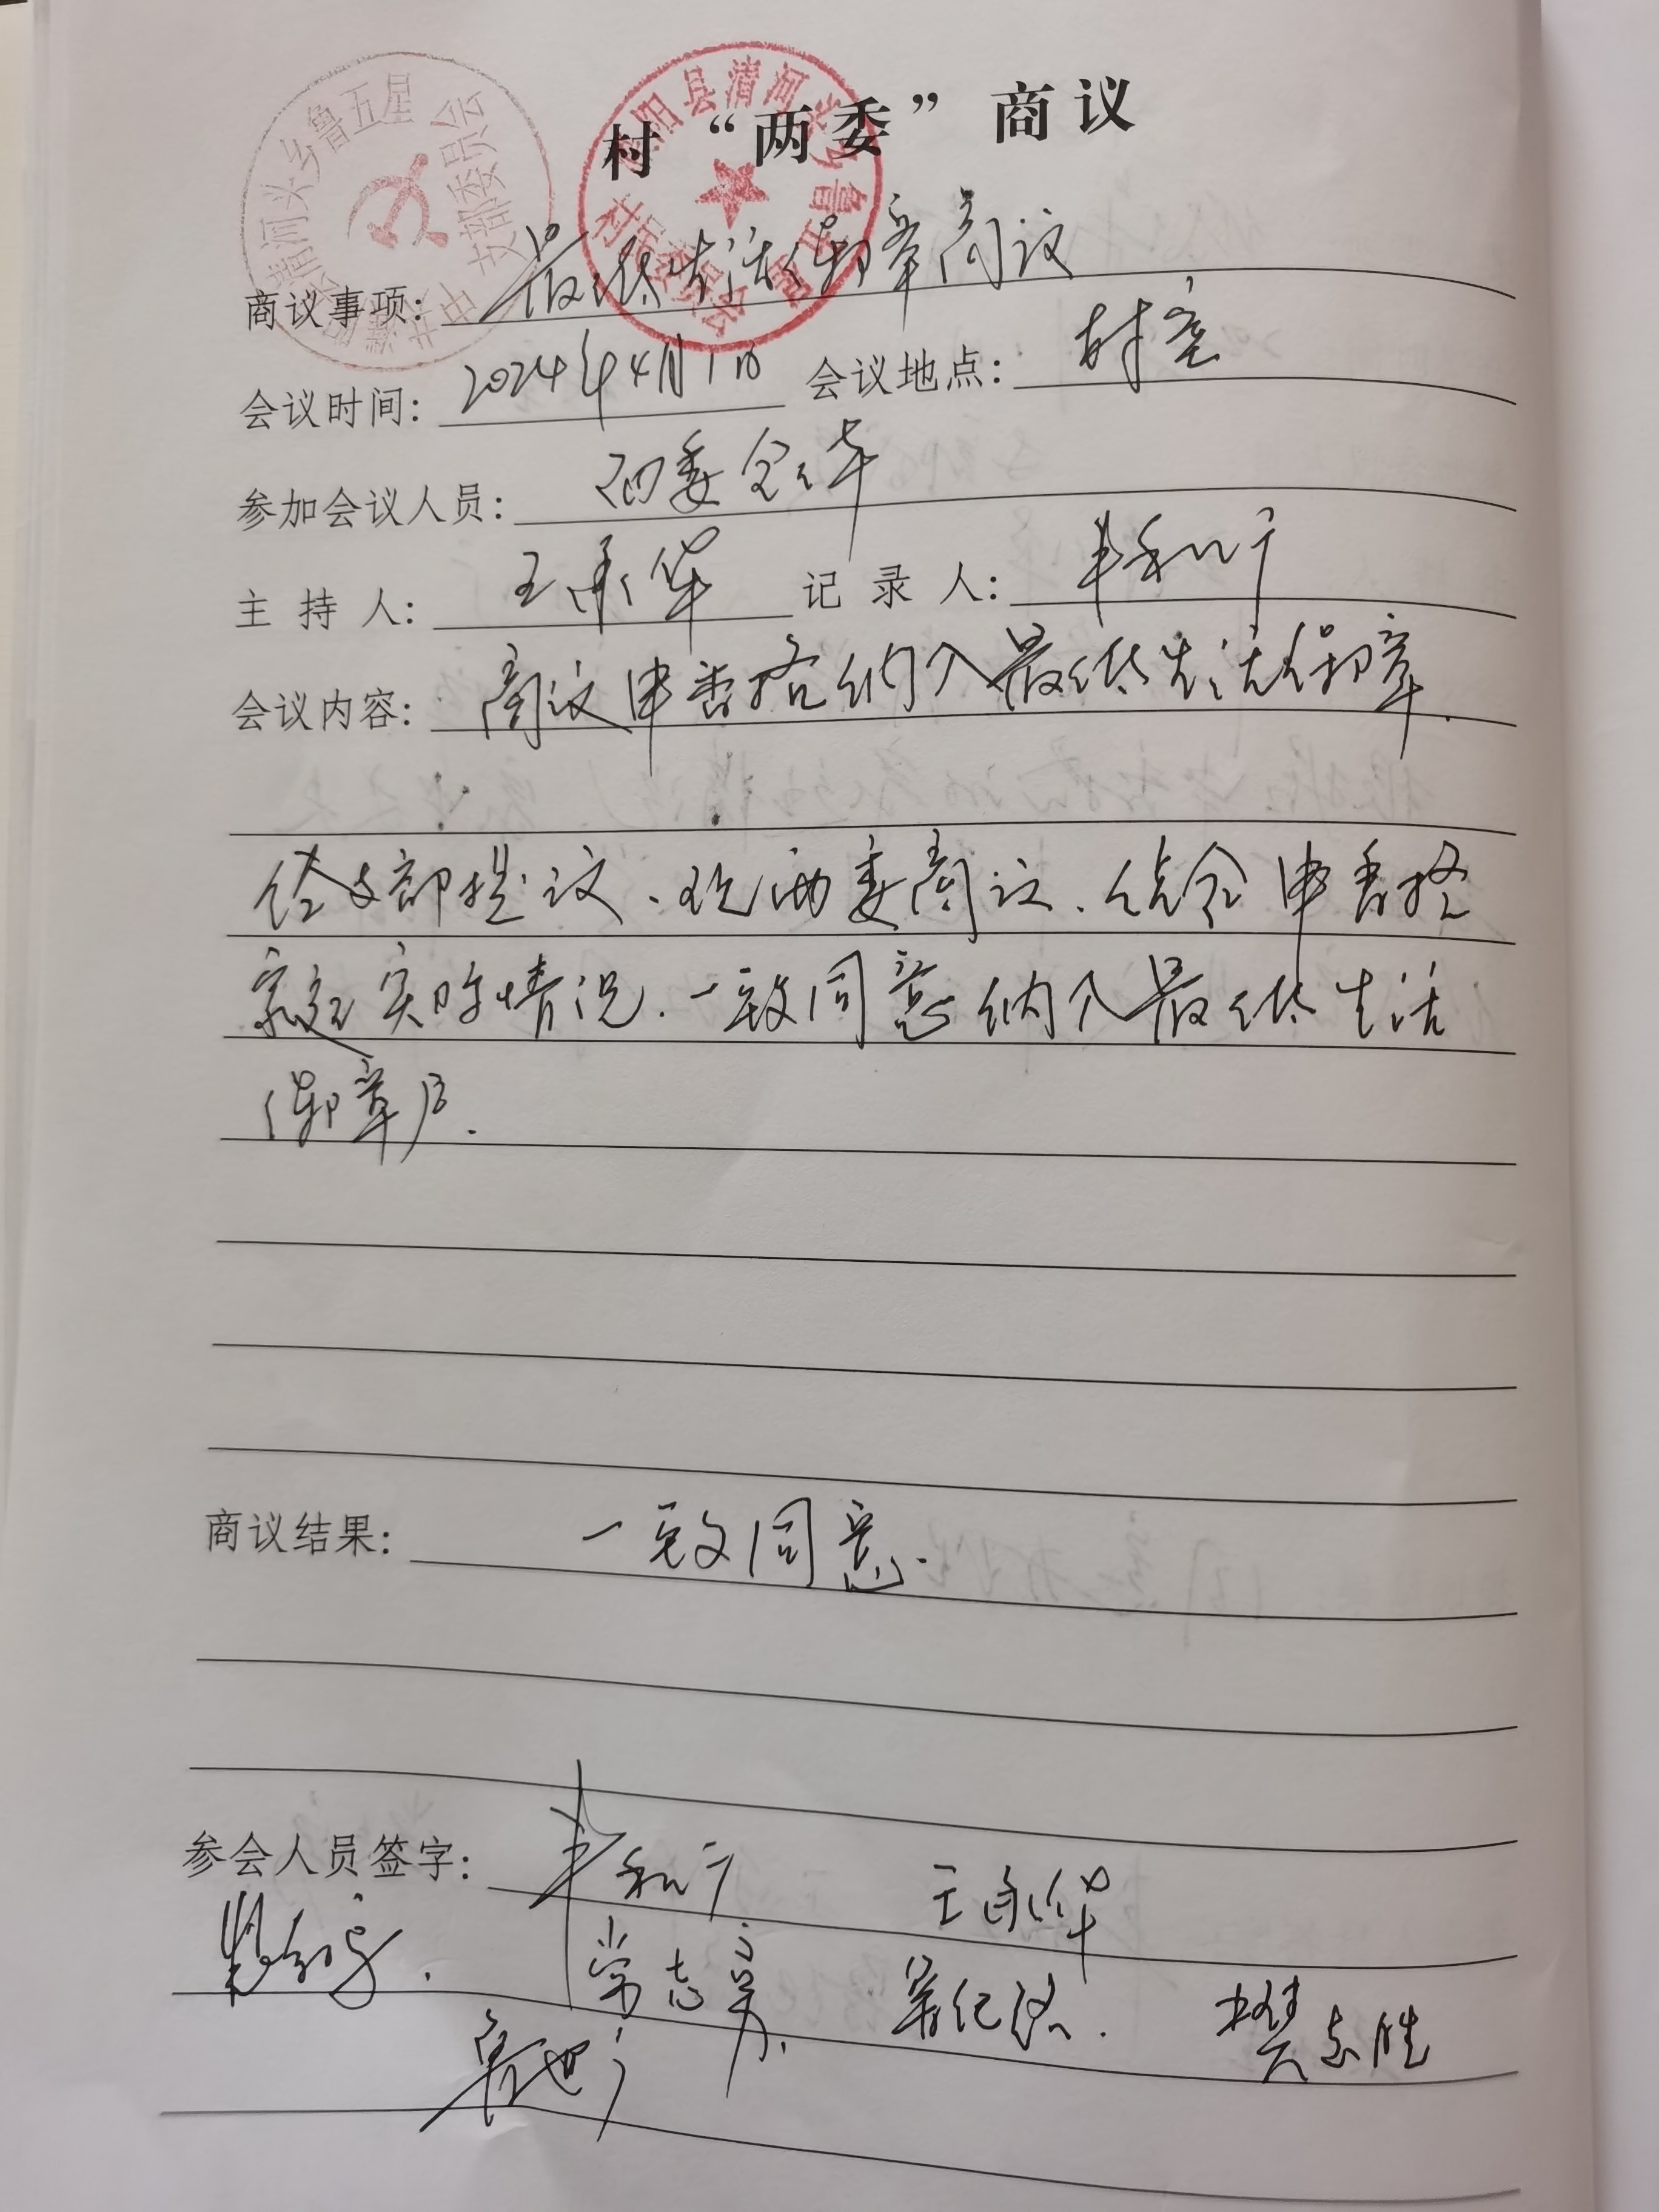 村“两委”商议
商议事项: 最低生活保障商议
会议时间: 2024年4月1日 会议地点: 村室
参加会议人员: 两委全体
主 持 人: 王承华 记 录 人:
会议内容: 商议申香格纳入最低生活保障.
经支部提议、现两委商议、结合申香格
家庭实际情况.一致同意纳入最低生活
保障户.
商议结果: 一致同意.
参会人员签字:
常志 樊志胜
鲁
清河头乡鲁五星
支部委员会
阳县清河头乡鲁五星
村民委员会